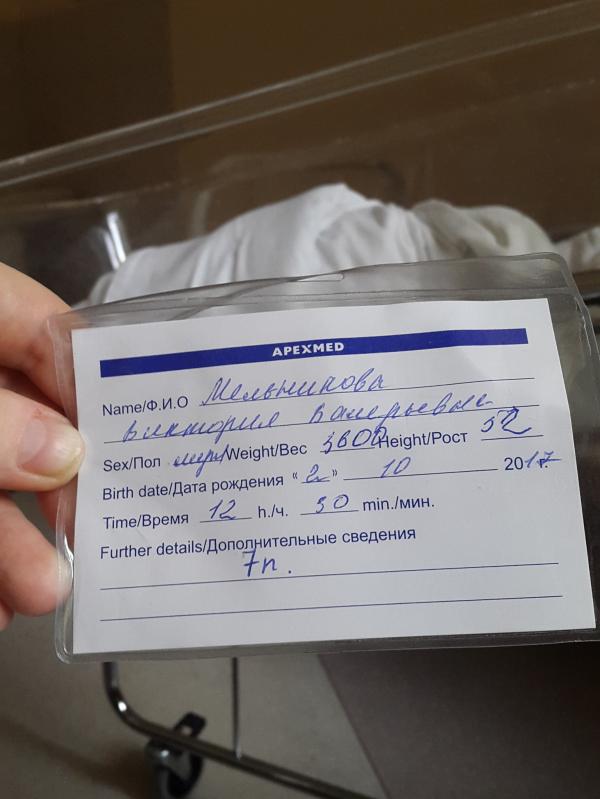 APEXMED
Name/Ф.И.О Мельникова
Виктория Валерьевна
Sex/Пол муж Weight/Вес 3800 Height/Рост 52
Birth date/Дата рождения «2» 10 2017г.
Time/Время 12 h./ч. 30 min./мин.
Further details/Дополнительные сведения
7п.